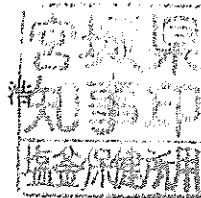 宮城県
浩
知事印
塩釜保健所用